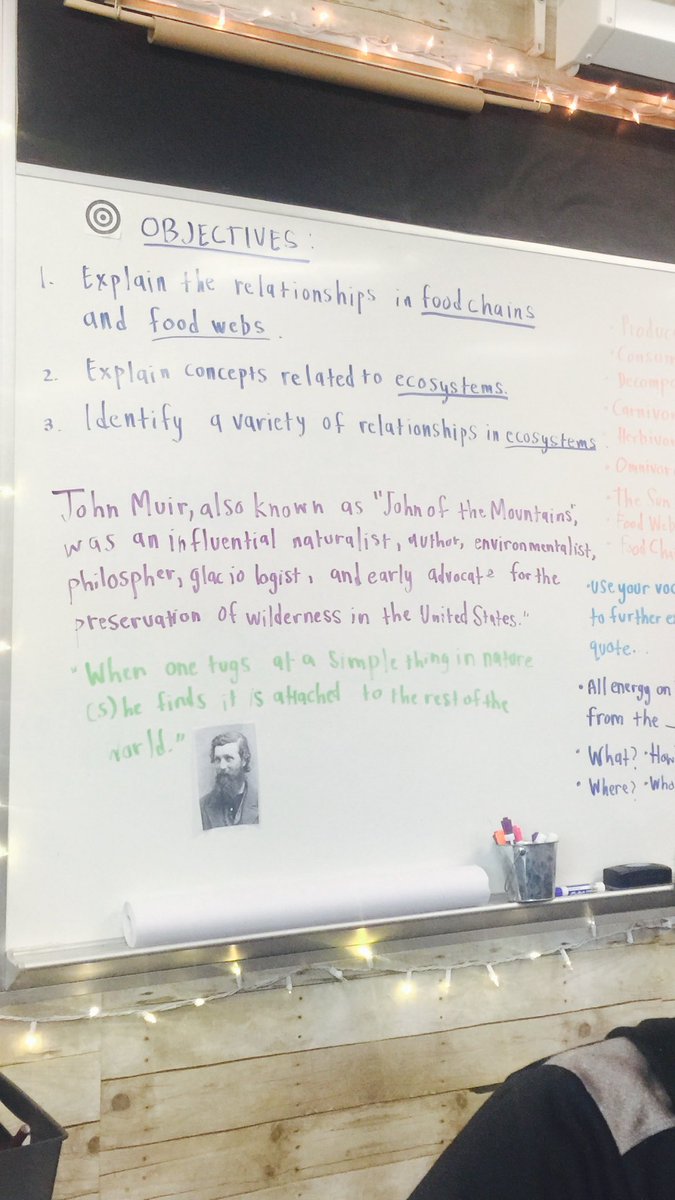 OBJECTIVES:
1. Explain the relationships in food chains
and food webs.
2. Explain concepts related to ecosystems.
3. Identify a variety of relationships in ecosystems
John Muir, also known as "John of the Mountains",
was an influential naturalist, author, environmentalist,
philospher, glaciologist, and early advocate for the
preservation of wilderness in the United States."
"When one tugs at a simple thing in nature
(s)he finds it is attached to the rest of the
world."
· The Sun
· Food Web
· Use your
to further
quote..
· All energy on
from the _
· What? · How
· Where?